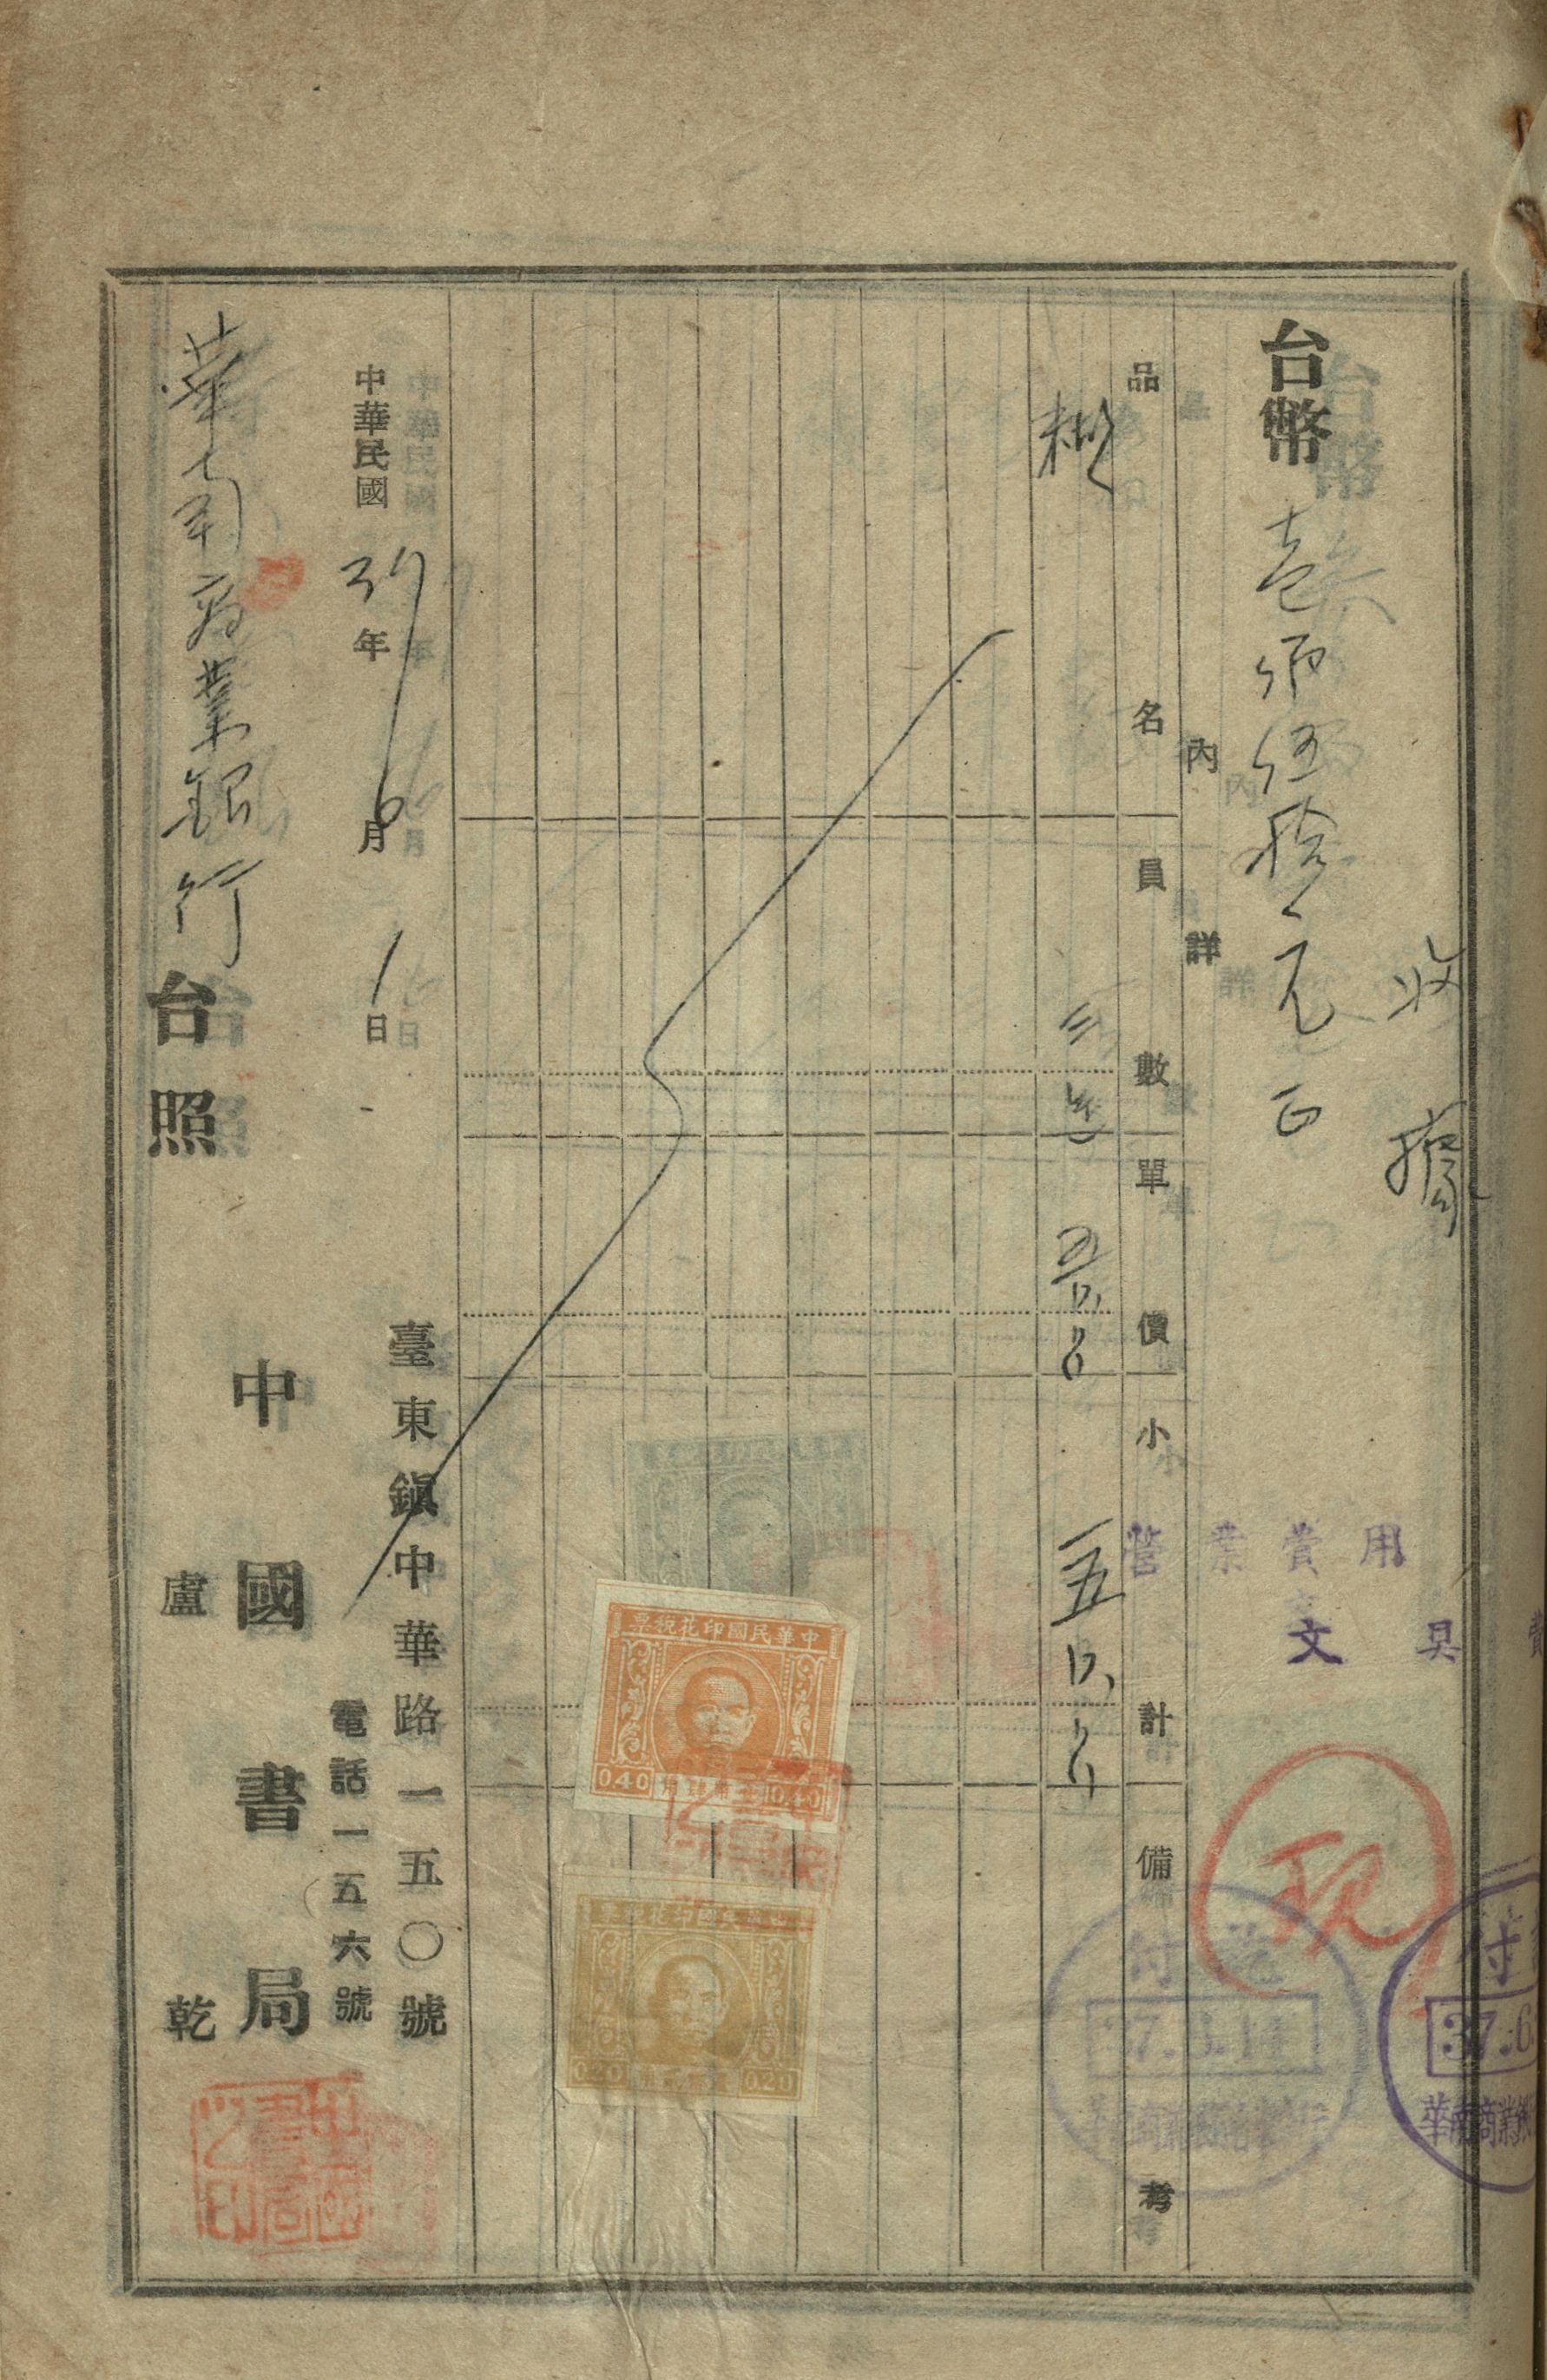 收據
台幣 壹佰伍拾元正
內詳
品名 員數 單價 小計 備考
糊 三 五〇 一五〇
中華民國 37年6月1日
華南商業銀行 台照
臺東鎮中華路一五〇號
電話一五六號
中國書局
盧乾
營業費用
文具費
現
付
37.6
華南商業銀
中華民國印花稅票
0.40 0.40
0.20 0.20
中國書局之印